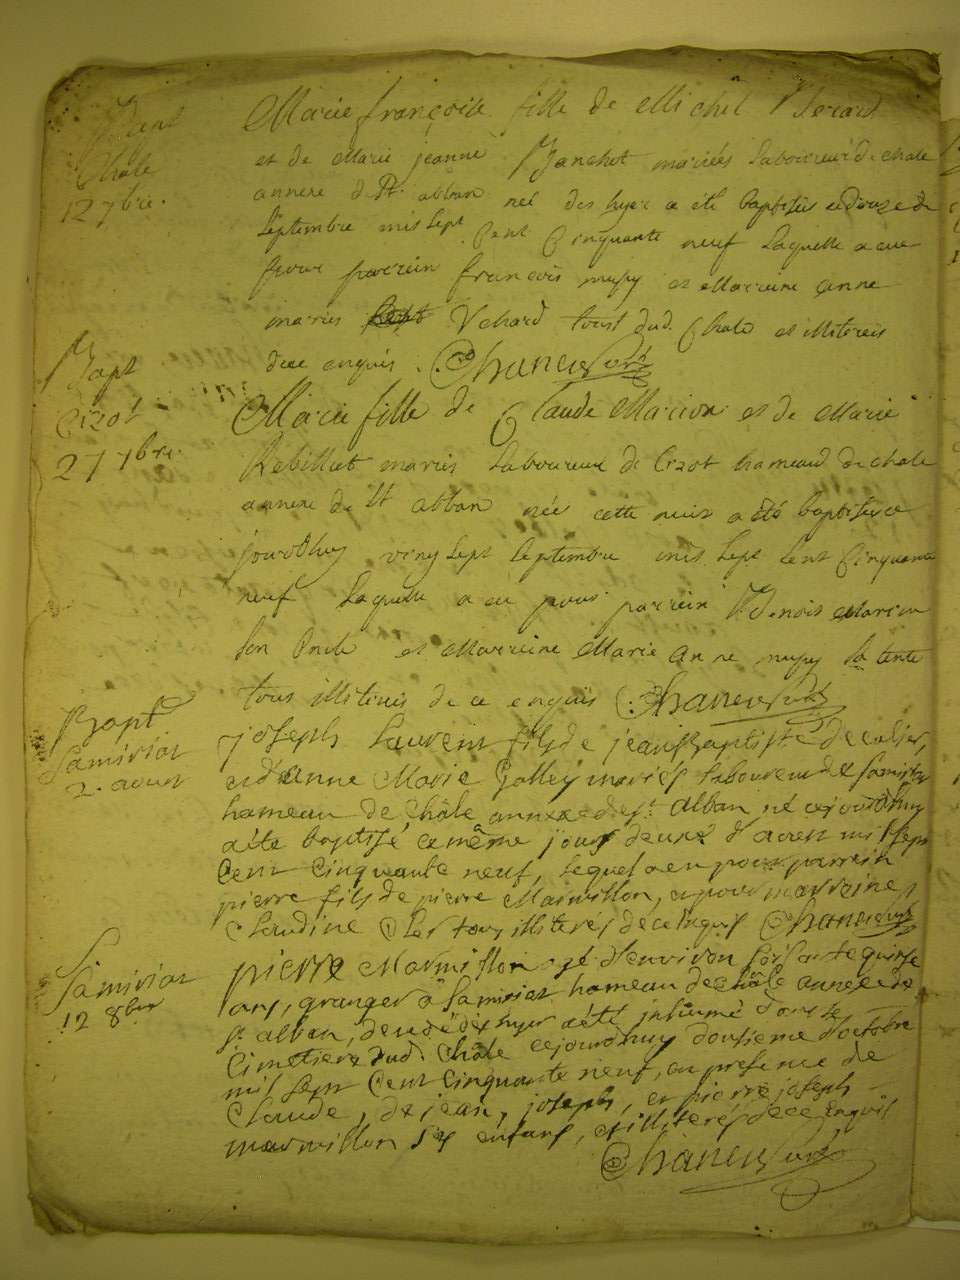 Bapt
Chale
12 7bre.
Marie françoise fille de Michel
et de Marie jeanne mariés laboureur de chale
annexe de St. alban née des hyer a été baptisée ce douze de
septembre mil sept cent cinquante neuf laquelle a eue
pour parrein francois mupy et Marreine anne
maries Vchard tous dud. Chale et illiterés
de ce enquis. Chaneu Curé
Bapt
Cizot
27 7bre.
Marie fille de Claude Marion et de Marie
Rebillet mariés laboureur de Cizot hameau de chale
annexe de St alban née cette nuit a été baptisée ce
jourdhuy vingt sept septembre mil sept cent cinquante
neuf laquelle a eu pour parrein Denois Marion
son oncle et Marreine Marie Anne mupy sa tente
tous illiterés de ce enquis Chaneu Curé
Bapt
Samiriat
2. aoust
joseph Laurent fils de jean Baptiste
et d'anne Marie Golley mariés laboureur de Samiriat
hameau de châle annexe de st. alban, né cejourdhuy
a été baptisé ce même jour deuxe d'aoust mil sept
cent cinquante neuf, lequel a eu pour parrein
pierre fils de pierre Marmillon, et pour marreine
Claudine tous illiterés de ce inquis Chaneu Curé
Samiriat
12 8bre
pierre Marmillon agé d'environ soisante quinse
ans, granger à Samiriat hameau de châle annexe de
st. alban, decedé dix hyer a été inhumé dans le
Cimetiere dud. Châle cejourdhuy dousieme d'octobre
mil sept cent cinquante neuf, en presence de
Claude, de jean, joseph, et pierre joseph
marmillon ses enfans, illiterés de ce enquis
Chaneu Curé